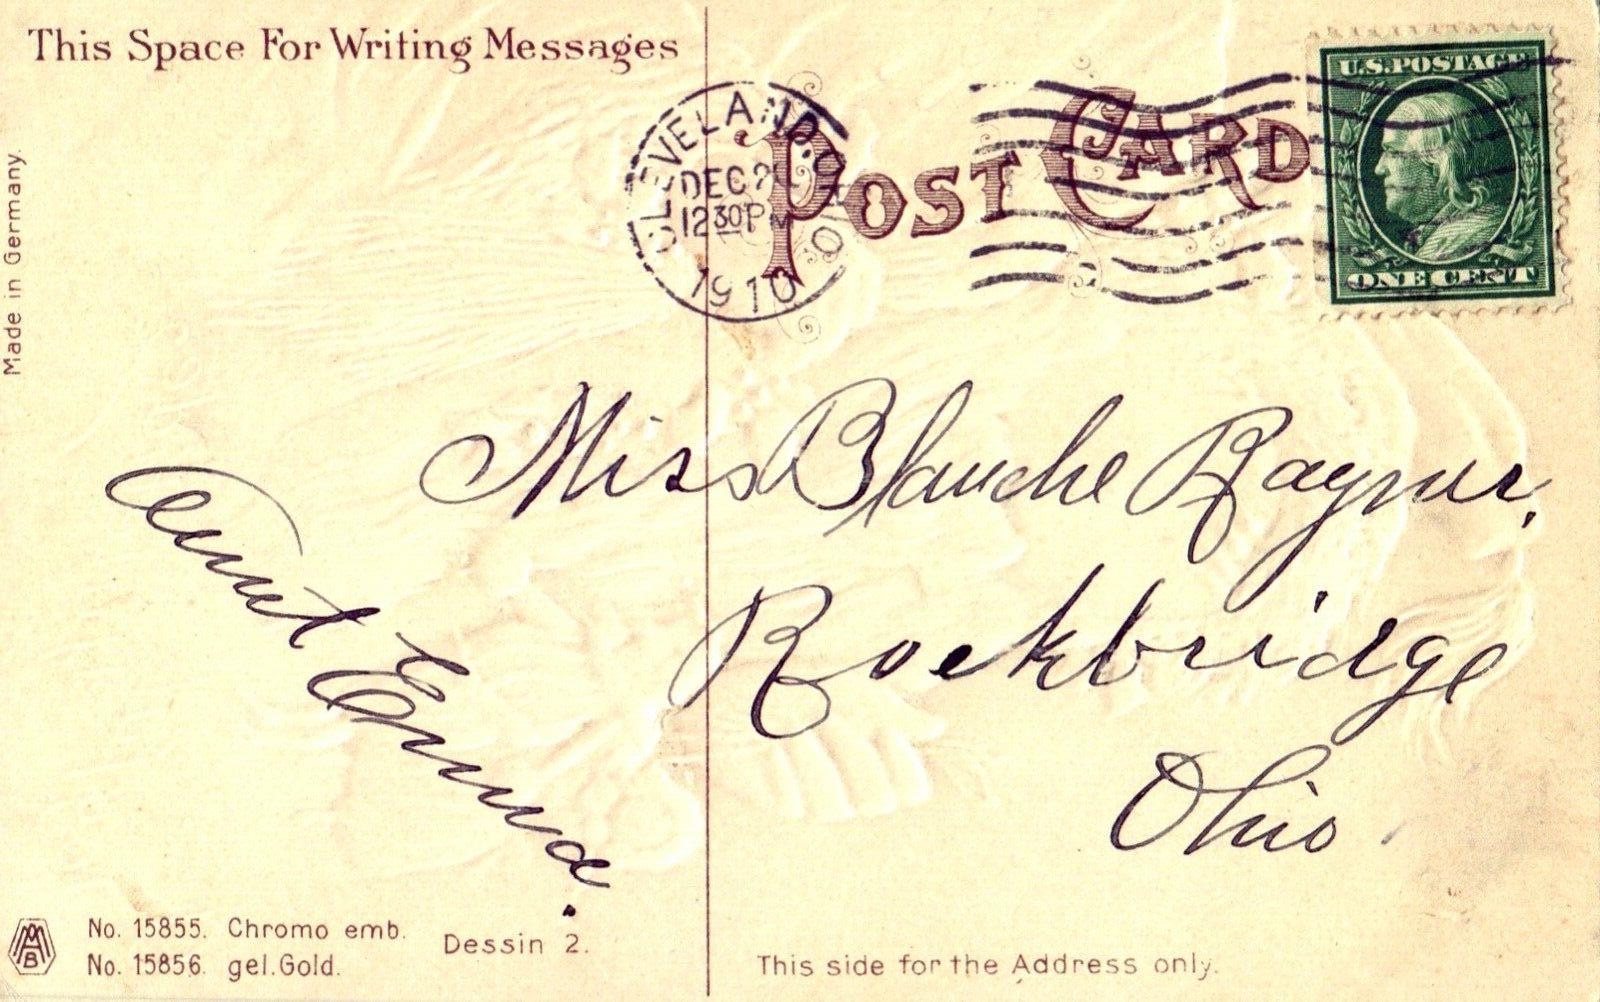 This Space For Writing Messages
Made in Germany.
POST CARD
CLEVELAND, O.
DEC
12 30 PM
1910
U.S. POSTAGE
ONE CENT
Miss Blanche Raynor,
Rockbridge
Ohio.
Aunt Emma.
No. 15855. Chromo emb.
No. 15856. gel. Gold.
Dessin 2.
This side for the Address only.